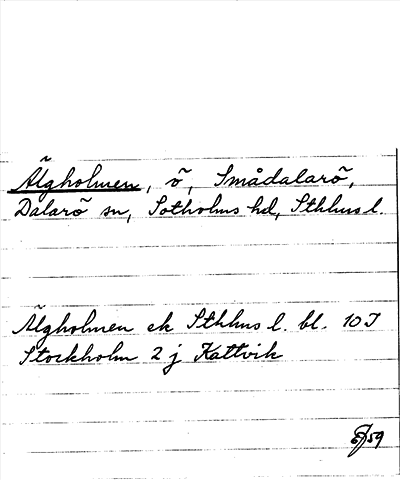 Älgholmen, ö, Smådalarö,
Dalarö sn, Sotholms hd, Sthlms l.
Älgholmen ek Sthlms l. bl. 10I
Stockholm 2 j Kattvik
59